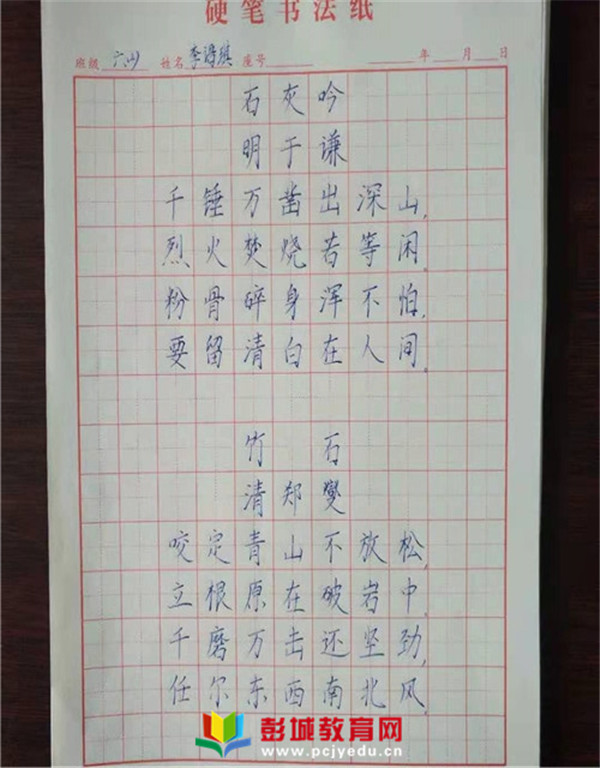 硬笔书法纸
班级 六(4) 姓名 李 琪 座号 年 月 日
石灰吟
明于谦
千锤万凿出深山,
烈火焚烧若等闲.
粉骨碎身浑不怕,
要留清白在人间.
竹石
清郑燮
咬定青山不放松,
立根原在破岩中.
千磨万击还坚劲,
任尔东西南北风.
彭城教育网
www.pcjyedu.cn